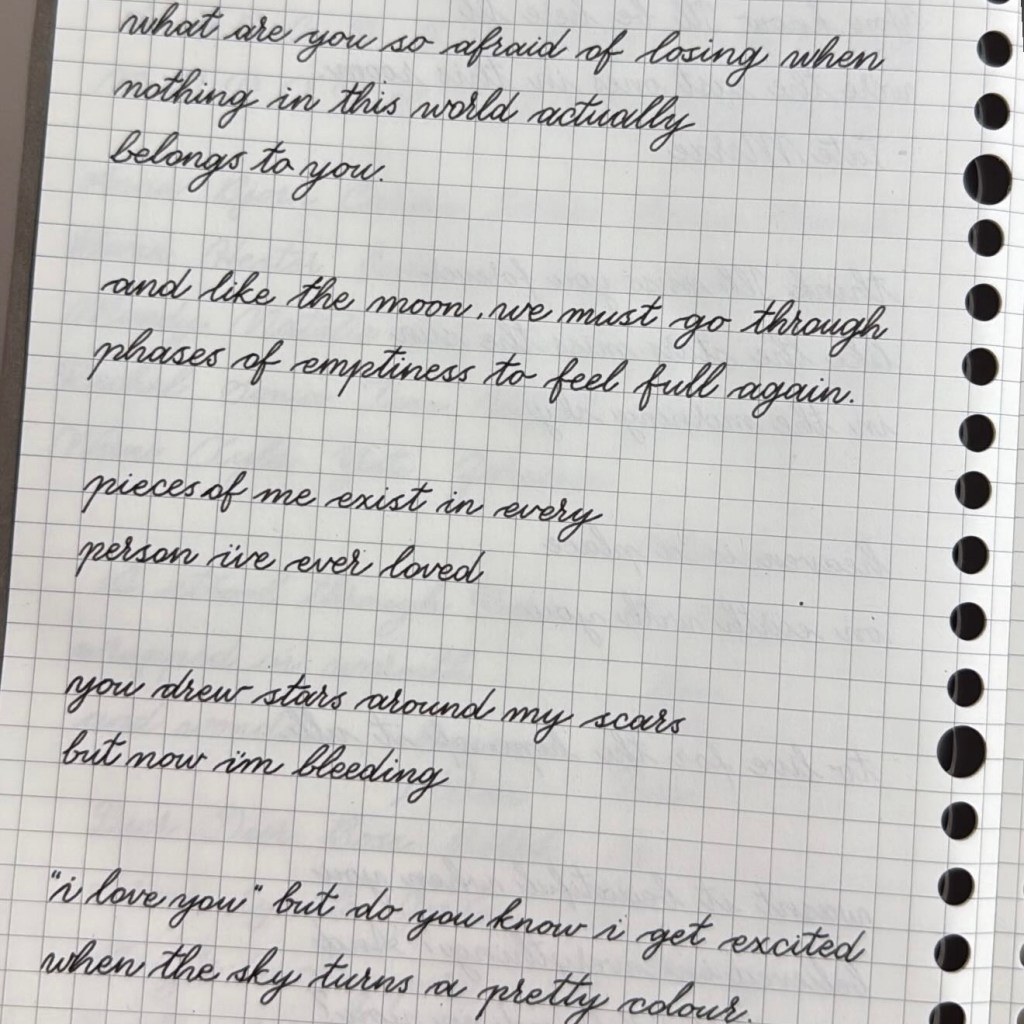 what are you so afraid of losing when
nothing in this world actually
belongs to you.
and like the moon, we must go through
phases of emptiness to feel full again.
pieces of me exist in every
person i've ever loved
you drew stars around my scars
but now i'm bleeding
"i love you" but do you know i get excited
when the sky turns a pretty colour.